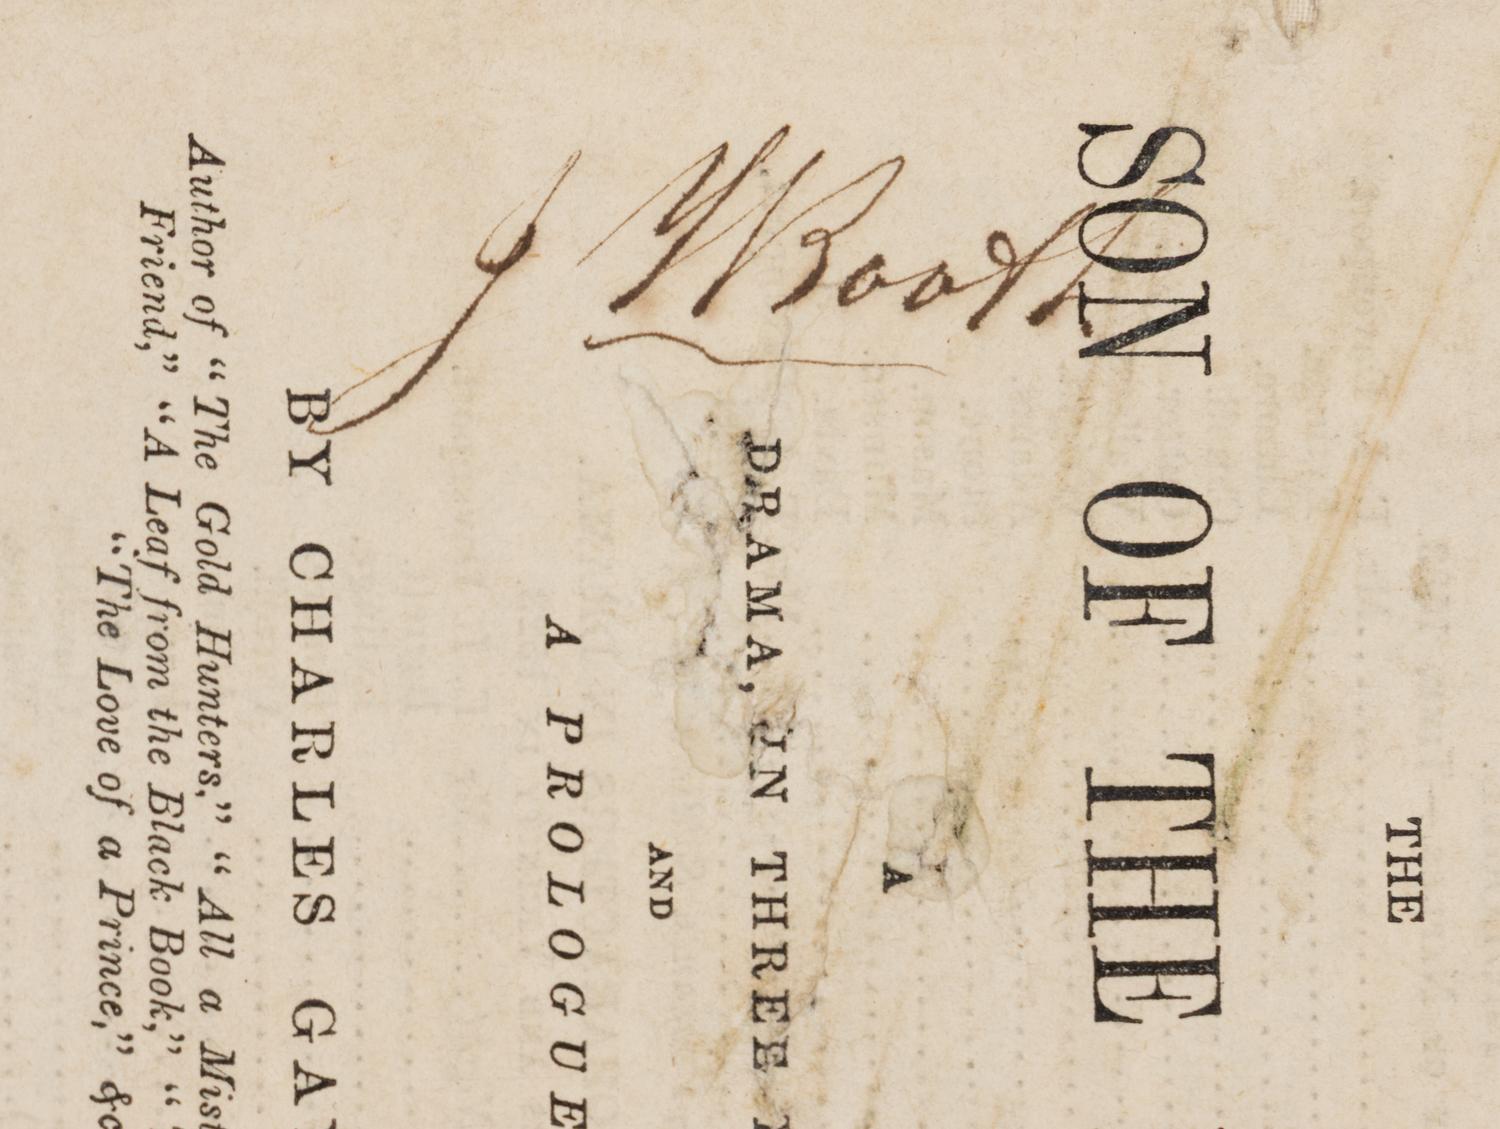 J W Booth
THE
SON OF THE
A
DRAMA, IN THREE
AND
A PROLOGUE
BY CHARLES GA
Author of “The Gold Hunters,” “All a Mist
Friend,” “A Leaf from the Black Book,” “
“The Love of a Prince,” &c